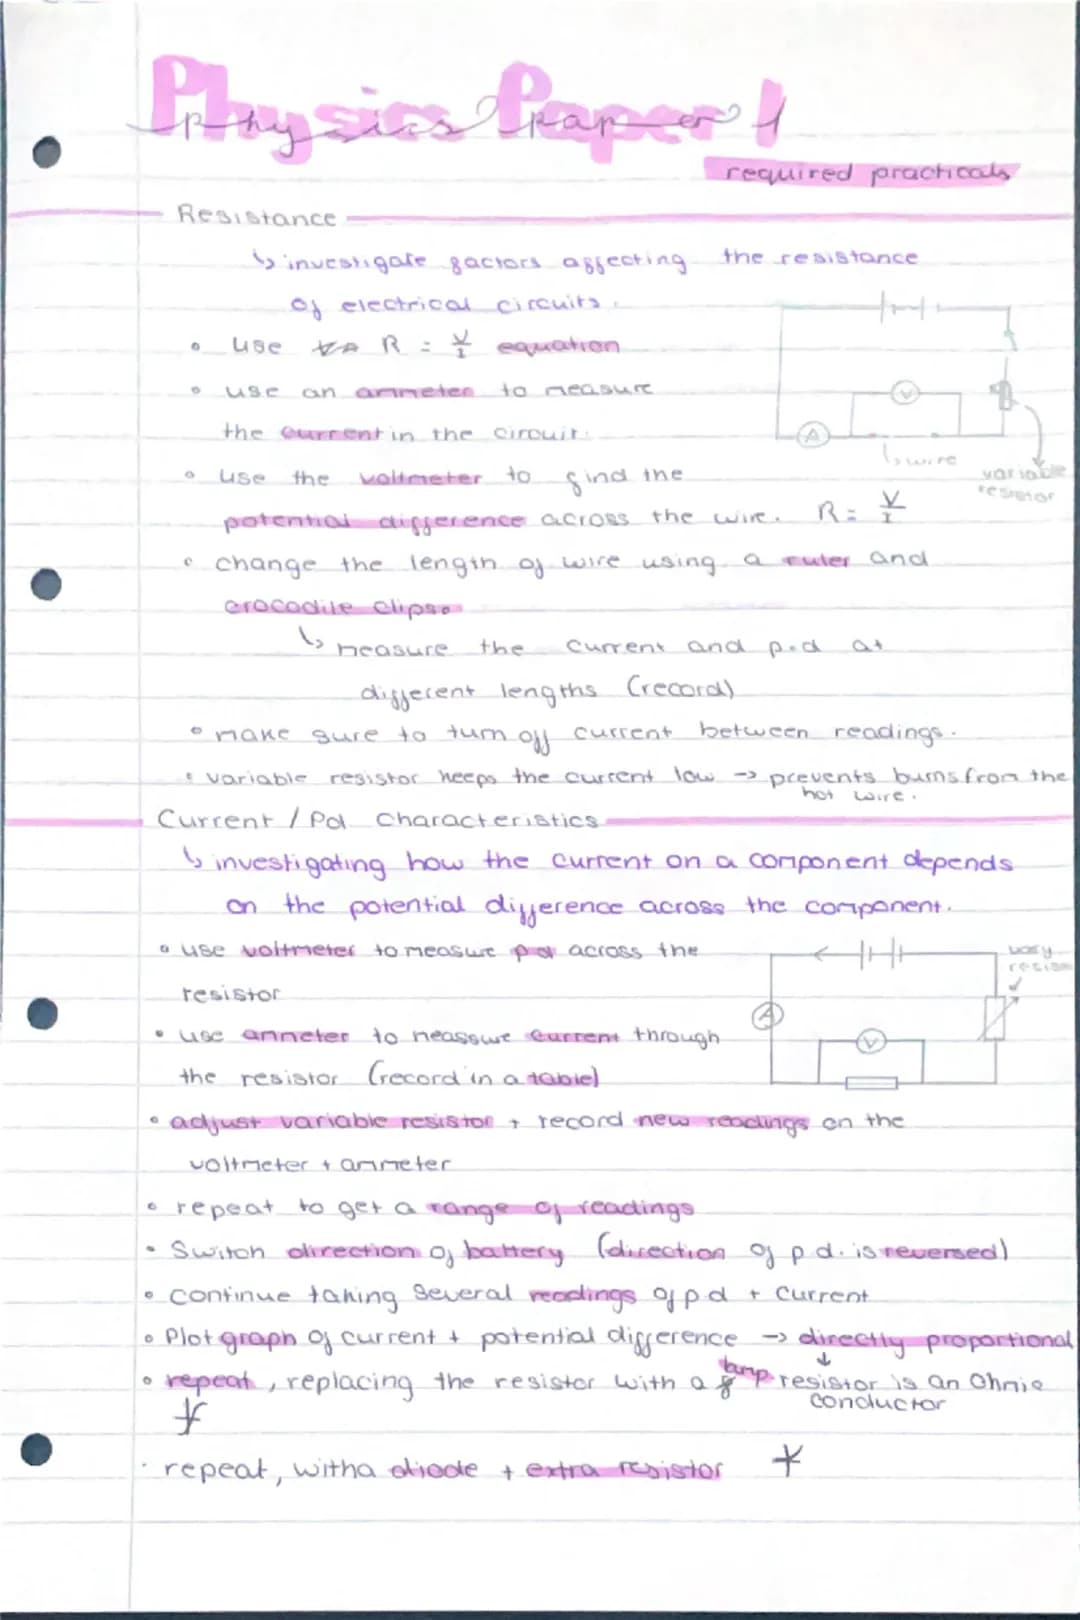 Physics Paper 1
required practicals
Resistance
↳ investigate factors affecting the resistance
of electrical circuits.
• use R = V/I equation
• use an ammeter to measure
the current in the circuit.
• use the voltmeter to find the
potential difference across the wire. R = V/I
V
A
↳ wire
variable
resistor
• change the length of wire using a ruler and
crocodile clips.
↳ measure the current and p.d at
different lengths (record)
• make sure to turn off current between readings.
• variable resistor keeps the current low → prevents burns from the
hot wire.
Current / Pd Characteristics
↳ investigating how the current on a component depends
on the potential difference across the component.
• use voltmeter to measure pd across the
resistor
• use ammeter to meassure current through
the resistor (record in a table)
vary
A
V
• adjust variable resistor + record new readings on the
voltmeter + ammeter
• repeat to get a range of readings
• Switch direction of battery (direction of p.d. is reversed)
• continue taking several readings of pd + current
• Plot graph of current + potential difference → directly proportional
↓
• repeat, replacing the resistor with a lamp resistor is an Ohmic
conductor
*
• repeat, with a diode + extra resistor *